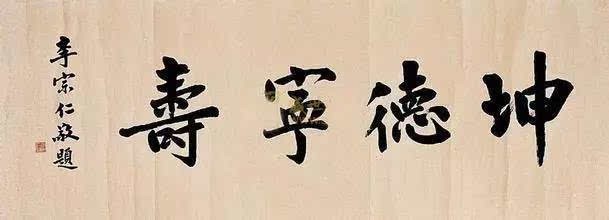 坤德寧壽
李宗仁敬題